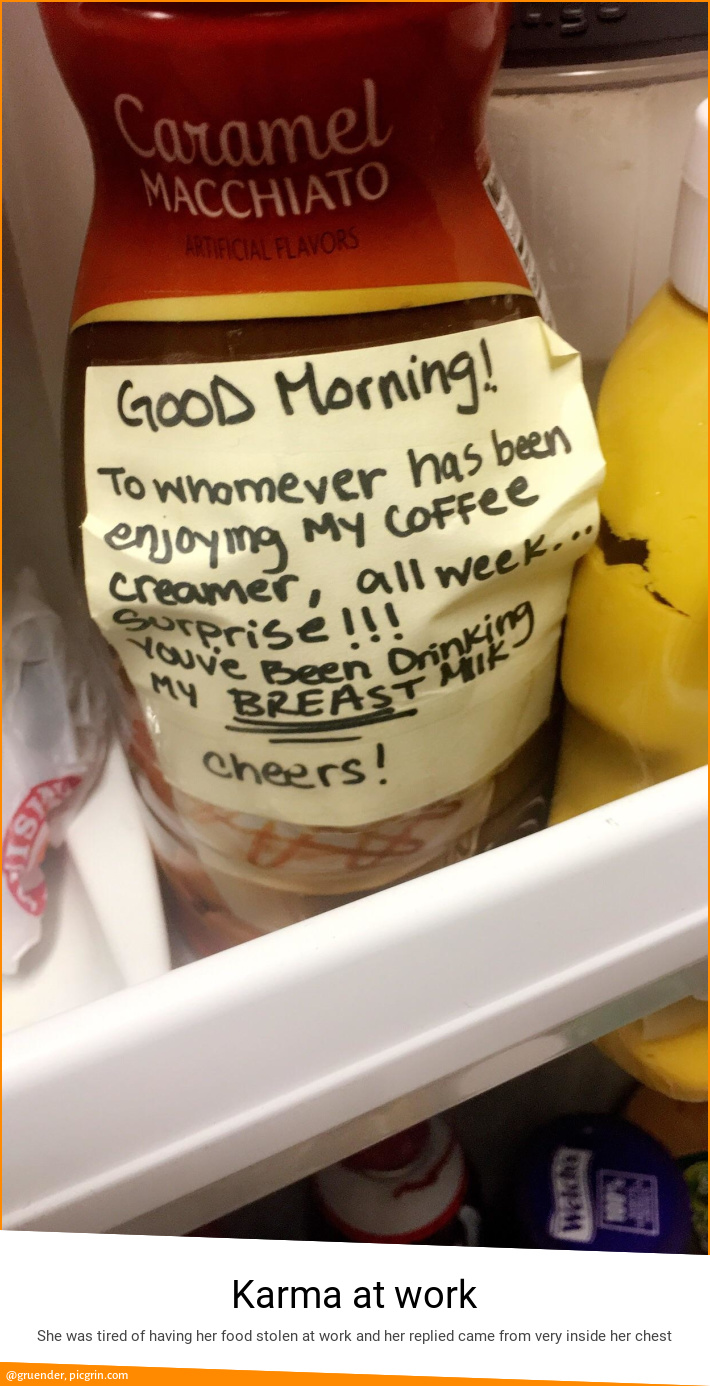 Caramel
MACCHIATO
ARTIFICIAL FLAVORS
GOOD Morning!
To whomever has been
enjoying MY COFFEE
creamer, all week...
surprise!!!
You've Been Drinking
MY BREAST Milk
cheers!
Welch's
Karma at work
She was tired of having her food stolen at work and her replied came from very inside her chest
@gruender, picgrin.com